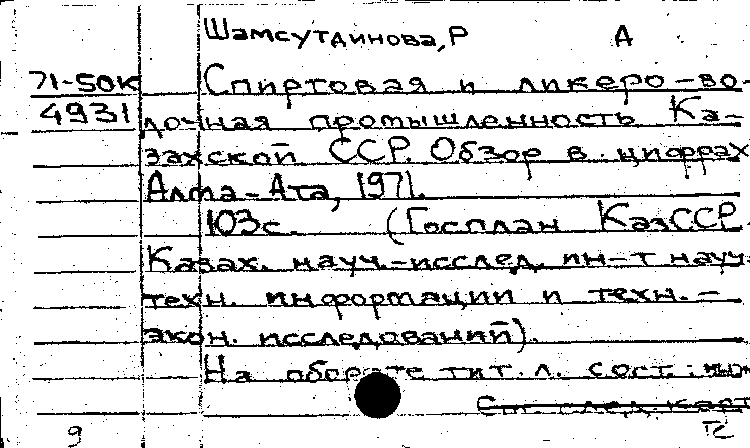 Шамсутдинова, Р А
71-50К Спиртовая и ликеро-во-
4931 дочная промышленность Ка-
захской ССР. Обзор в цифрах
Алма-Ата, 1971.
103с. (Госплан КазССР.
Казах. науч.-исслед. ин-т науч.
техн. информации и техн.-
экон. исследований).
На обороте тит. л. сост.:
См. след. карт
9